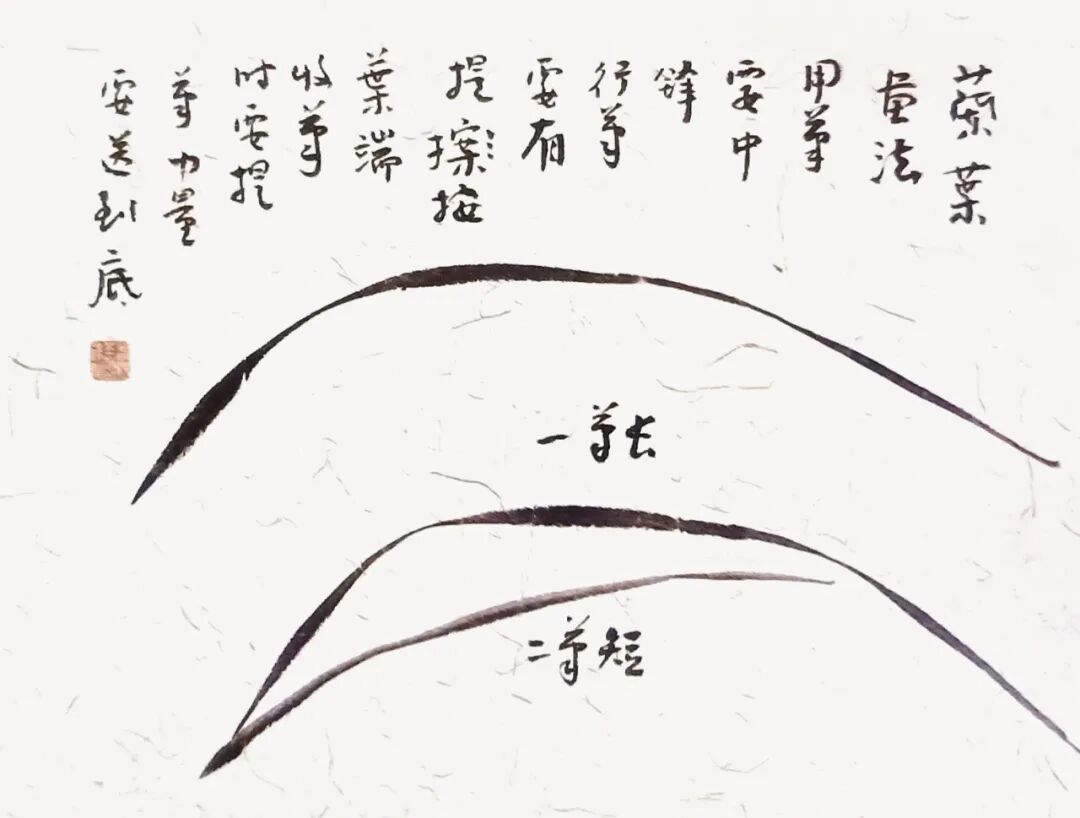 蘭葉
画法
用筆
要中
鋒
行筆
要有
提 按
葉端
收筆
时要提
筆力量
要送到底
一筆长
二筆短